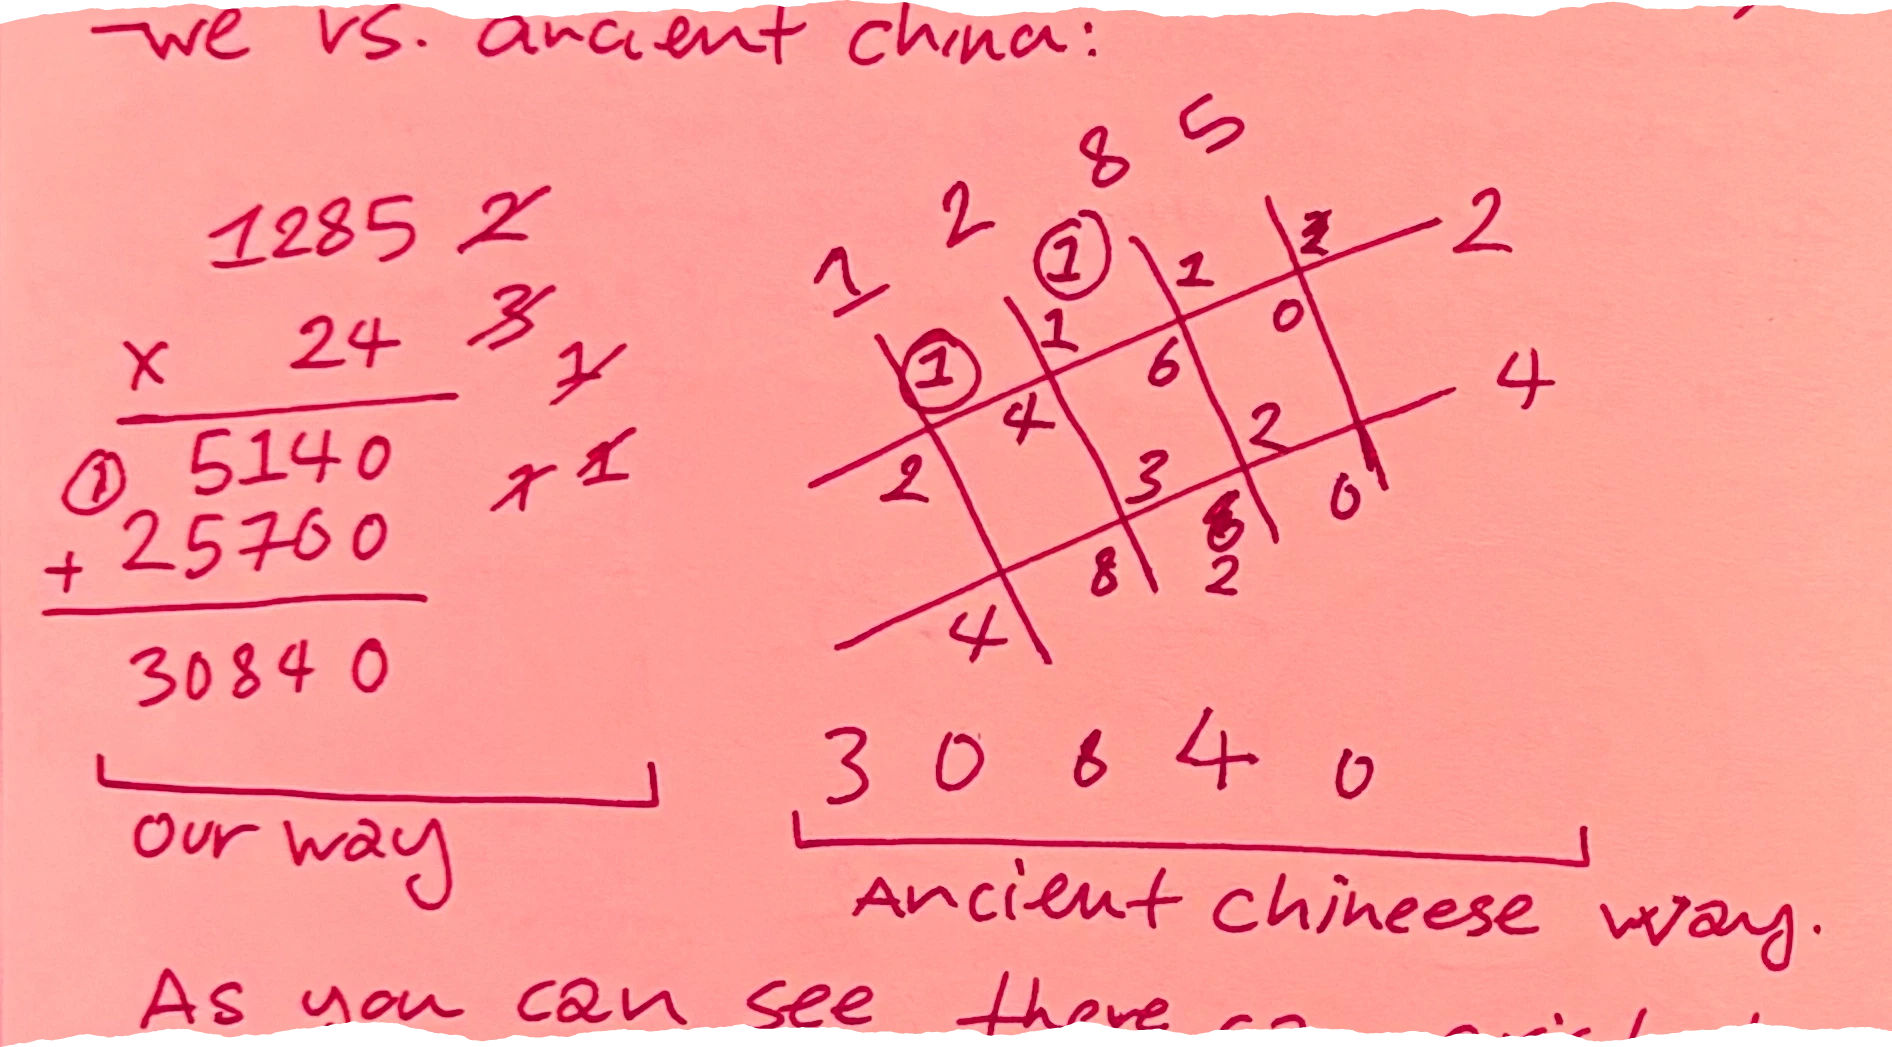 -we vs. ancient china:
1285 2
x 24 3 1
① 5140 1 1
+ 25700
30840
our way
1 2 8 5
① ① 1 1 2
2 4 6 0 2
4 8 3 2 0 4
8 2
3 0 8 4 0
Ancient chineese way.
As you can see there